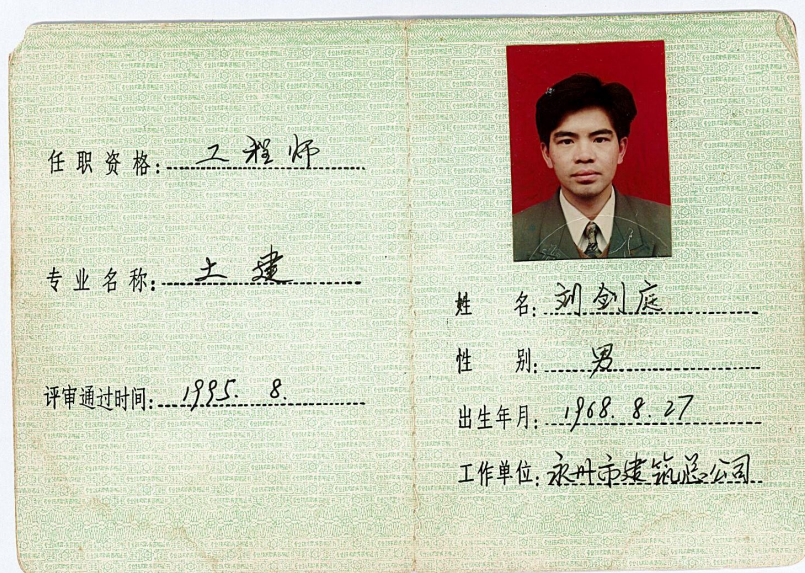 任职资格：工程师
专业名称：土建
评审通过时间：1995. 8.
姓名：刘剑庭
性别：男
出生年月：1968. 8. 27
工作单位：永州市建筑总公司